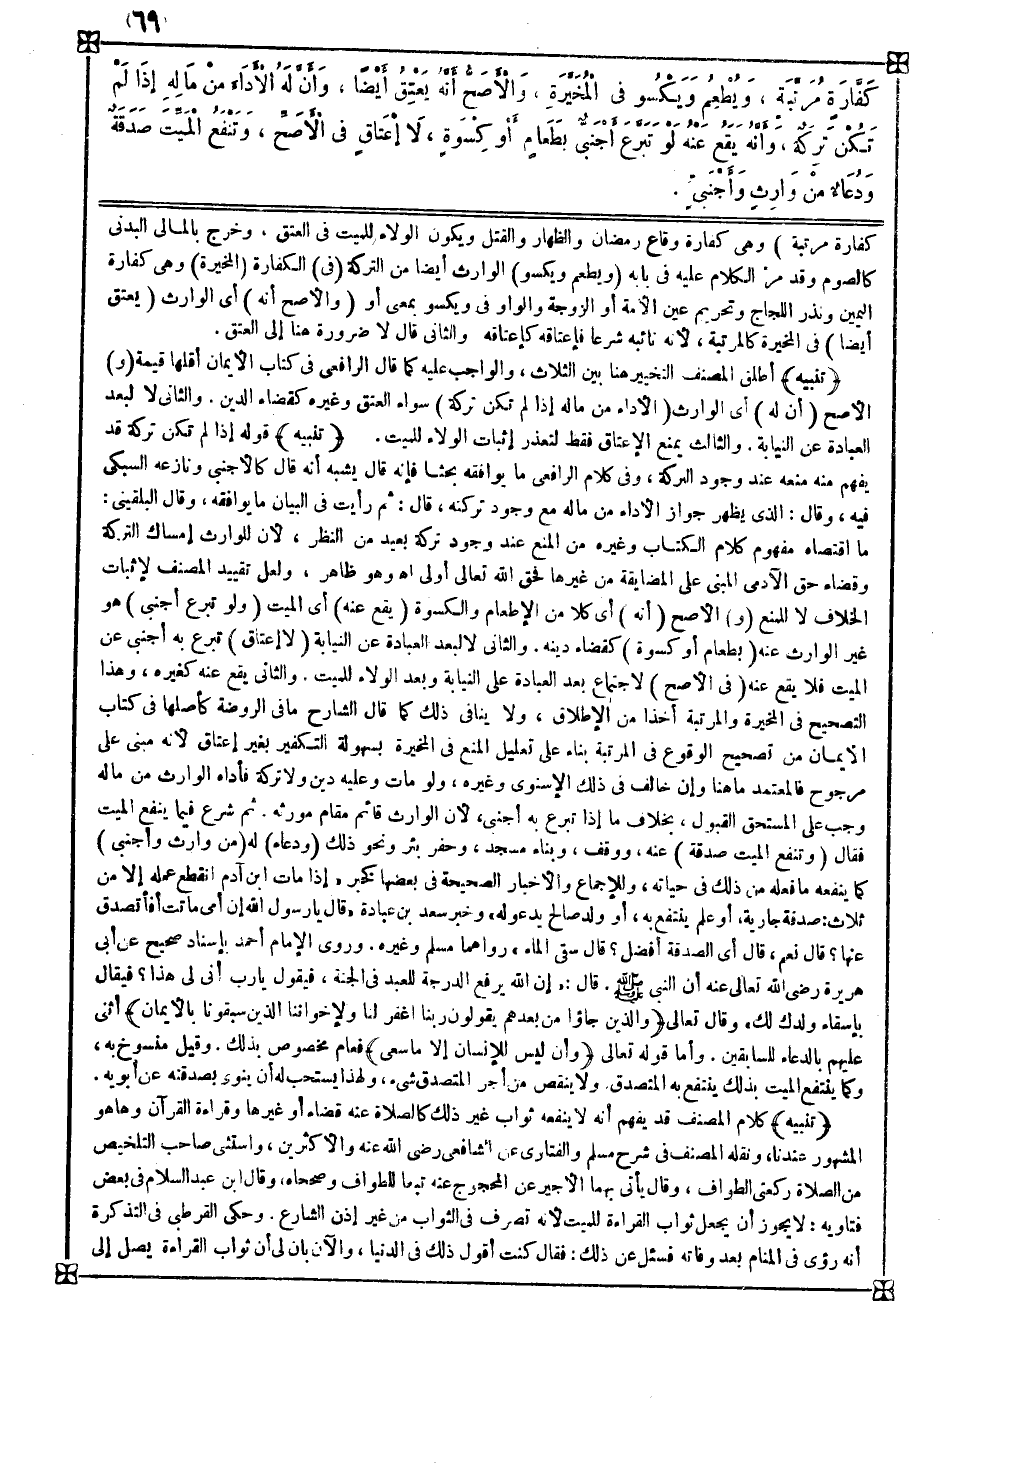 (٦٩)
كَفَّارَةٍ مُرَتَّبَةٍ ، وَيُطْعِمُ وَيَكْسُو فِى الْمُخَيَّرَةِ ، وَالْأَصَحُّ أَنَّهُ يَعْتِقُ أَيْضًا ، وَأَنَّ لَهُ الْأَدَاءَ مِنْ مَالِهِ إِذَا لَمْ
تَكُنْ تَرِكَةٌ ، وَأَنَّهُ يَقَعُ عَنْهُ لَوْ تَبَرَّعَ أَجْنَبِىٌّ بِطَعَامٍ أَوْ كِسْوَةٍ ، لَا إِعْتَاقٍ فِى الْأَصَحِّ ، وَتَنْفَعُ الْمَيِّتَ صَدَقَةٌ
وَدُعَاءٌ مِنْ وَارِثٍ وَأَجْنَبِىٍّ .
كفارة مرتبة ) وهى كفارة وقاع رمضان والظهار والقتل ويكون الولاء للميت فى العتق ، وخرج بالمالى البدنى
كالصوم وقد مرّ الكلام عليه فى بابه (ويطعم ويكسو) الوارث أيضا من التركة (فى) الكفارة (المخيرة) وهى كفارة
اليمين ونذر اللجاج وتحريم عين الأمة أو الزوجة والواو فى ويكسو بمعنى أو ( والأصح أنه ) أى الوارث ( يعتق
أيضا ) فى المخيرة كالمرتبة ، لأنه نائبه شرعا فإعتاقه كإعتاقه والثانى قال لا ضرورة هنا إلى العتق .
﴿ تنبيه ﴾ أطلق المصنف التخيير هنا بين الثلاث ، والواجب عليه كما قال الرافعى فى كتاب الأيمان أقلها قيمة (و)
الأصح ( أن له ) أى الوارث ( الأداء من ماله إذا لم تكن تركة ) سواء العتق وغيره كقضاء الدين . والثانى لا لبعد
العبادة عن النيابة . والثالث يمنع الإعتاق فقط لتعذر إثبات الولاء للميت . ﴿ تنبيه ﴾ قوله إذا لم تكن تركة قد
يفهم منه منعه عند وجود التركة ، وفى كلام الرافعى ما يوافقه بحثا فإنه قال يشبه أنه قال كالأجنبى ونازعه السبكى
فيه ، وقال : الذى يظهر جواز الأداء من ماله مع وجود تركته ، قال : ثم رأيت فى البيان ما يوافقه ، وقال البلقينى :
ما اقتضاه مفهوم كلام الكتاب وغيره من المنع عند وجود تركة بعيد من النظر ، لأن للوارث إمساك التركة
وقضاء حق الآدمى المبنى على المضايقة من غيرها فحق الله تعالى أولى اه وهو ظاهر ، ولعل تقييد المصنف لإثبات
الخلاف لا للمنع (و) الأصح ( أنه ) أى كلا من الإطعام والكسوة ( يقع عنه ) أى الميت ( ولو تبرع أجنبى ) هو
غير الوارث عنه ( بطعام أو كسوة ) كقضاء دينه . والثانى لا لبعد العبادة عن النيابة ( لا إعتاق ) تبرع به أجنبى عن
الميت فلا يقع عنه ( فى الأصح ) لاجتماع بعد العبادة على النيابة وبعد الولاء للميت . والثانى يقع عنه كغيره ، وهذا
التصحيح فى المخيرة والمرتبة أخذا من الإطلاق ، ولا ينافى ذلك كما قال الشارح مافى الروضة كأصلها فى كتاب
الأيمان من تصحيح الوقوع فى المرتبة بناء على تعليل المنع فى المخيرة بسهولة التكفير بغير إعتاق لأنه مبنى على
مرجوح فالمعتمد ماهنا وإن خالف فى ذلك الإسنوى وغيره ، ولو مات وعليه دين ولا تركة فأداه الوارث من ماله
وجب على المستحق القبول ، بخلاف ما إذا تبرع به أجنبى، لأن الوارث قائم مقام مورثه . ثم شرع فيما ينفع الميت
فقال ( وتنفع الميت صدقة ) عنه ، ووقف ، وبناء مسجد ، وحفر بئر ونحو ذلك (ودعاء) له (من وارث وأجنبى )
كما ينفعه ما فعله من ذلك فى حياته ، وللإجماع والأخبار الصحيحة فى بعضها كخبر « إذا مات ابن آدم انقطع عمله إلا من
ثلاث: صدقة جارية، أو علم ينتفع به ، أو ولد صالح يدعو له» وخبر سعد بن عبادة «قال يا رسول الله إن أمى ماتت أفأتصدق
عنها؟ قال نعم ، قال أى الصدقة أفضل؟ قال سقى الماء » رواهما مسلم وغيره . وروى الإمام أحمد بإسناد صحيح عن أبى
هريرة رضى الله تعالى عنه أن النبى ﷺ . قال : « إن الله يرفع الدرجة للعبد فى الجنة ، فيقول يارب أنى لى هذا ؟ فيقال
بإسقاء ولدك لك» وقال تعالى ﴿ والذين جاؤا من بعدهم يقولون ربنا اغفر لنا ولإخواننا الذين سبقونا بالايمان ﴾ أثنى
عليهم بالدعاء للسابقين . وأما قوله تعالى ﴿ وأن ليس للإنسان إلا ماسعى ﴾ فعام مخصوص بذلك . وقيل منسوخ به ،
وكما ينتفع الميت بذلك ينتفع به المتصدق. ولا ينقص من أجر المتصدق شىء ، ولهذا يستحب له أن ينوى بصدقته عن أبويه .
﴿ تنبيه ﴾ كلام المصنف قد يفهم أنه لا ينفعه ثواب غير ذلك كالصلاة عنه قضاء أو غيرها وقراءة القرآن وهاهو
المشهور عندنا، ونقله المصنف فى شرح مسلم والفتاوى عن الشافعى رضى الله عنه والأكثرين ، واستثنى صاحب التلخيص
من الصلاة ركعتى الطواف ، وقال يأتى بهما الأجير عن المحجوج عنه تبعا للطواف وصححاه، وقال ابن عبد السلام فى بعض
فتاويه : لا يجوز أن يجعل ثواب القراءة للميت لأنه تصرف فى الثواب من غير إذن الشارع . وحكى القرطبى فى التذكرة
أنه رؤى فى المنام بعد وفاته فسئل عن ذلك : فقال كنت أقول ذلك فى الدنيا ، والآن بان لى أن ثواب القراءة يصل إلى